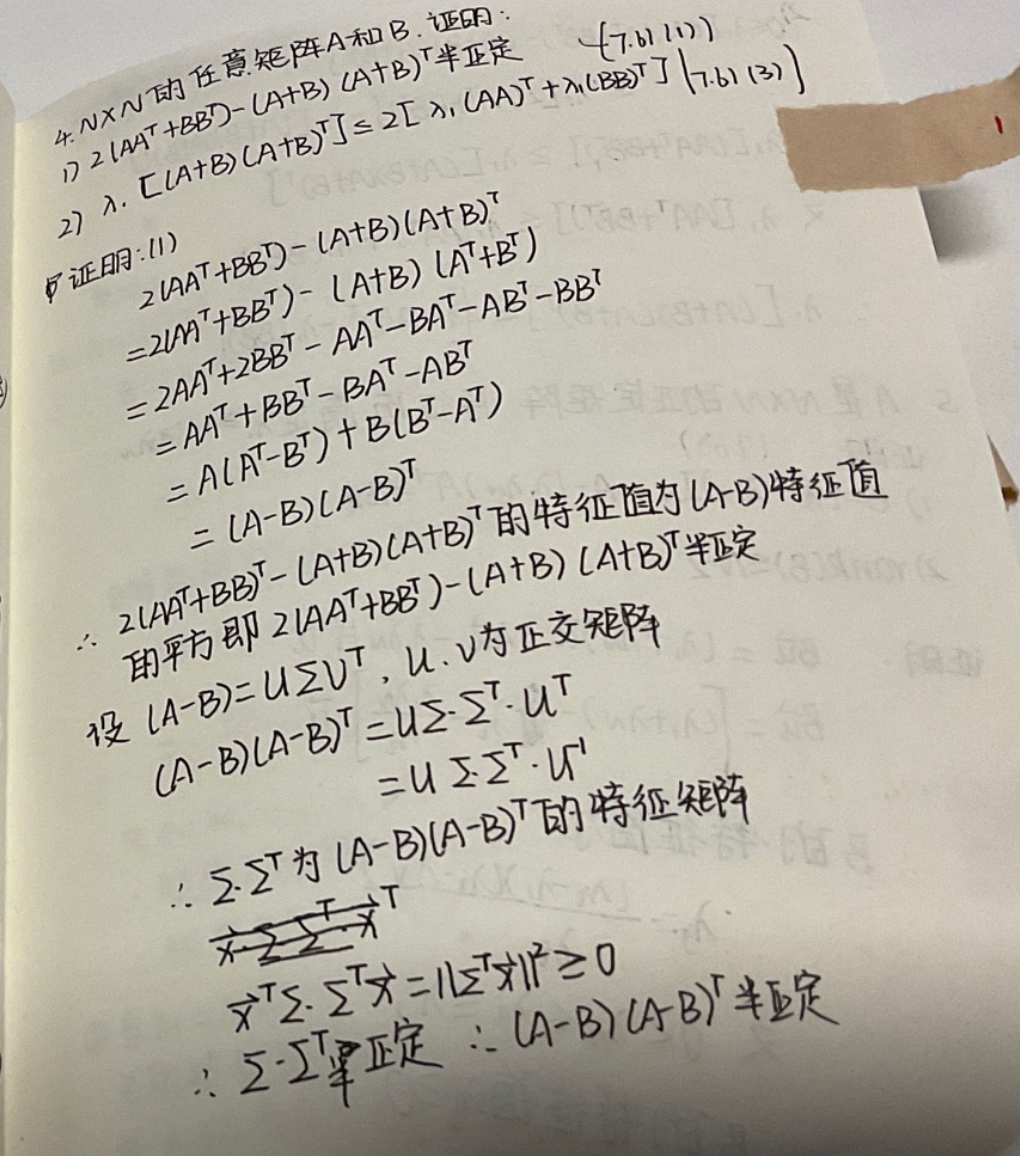 4. N×N的任意矩阵A和B. 证明:
1) 2(AAᵀ+BBᵀ)-(A+B)(A+B)ᵀ半正定 (7.6)(1))
2) λ₁[(A+B)(A+B)ᵀ]≤2[λ₁(AA)ᵀ+λ₁(BB)ᵀ] (7.6)(3))
证明:(1)
2(AAᵀ+BBᵀ)-(A+B)(A+B)ᵀ
=2(AAᵀ+BBᵀ)-(A+B)(Aᵀ+Bᵀ)
=2AAᵀ+2BBᵀ-AAᵀ-BAᵀ-ABᵀ-BBᵀ
=AAᵀ+BBᵀ-BAᵀ-ABᵀ
=A(Aᵀ-Bᵀ)+B(Bᵀ-Aᵀ)
=(A-B)(A-B)ᵀ
∴ 2(AAᵀ+BB)ᵀ-(A+B)(A+B)ᵀ的特征值为(A-B)特征值
的平方即2(AAᵀ+BBᵀ)-(A+B)(A+B)ᵀ半正定
设 (A-B)=UΣVᵀ, U.V为正交矩阵
(A-B)(A-B)ᵀ=UΣ·Σᵀ·Uᵀ
=UΣ·Σᵀ·U⁻¹
∴ Σ·Σᵀ为(A-B)(A-B)ᵀ的特征矩阵
x⃗ᵀΣ·Σᵀx⃗=||Σᵀx⃗||²≥0
∴ Σ·Σᵀ半正定 ∴ (A-B)(A-B)ᵀ半正定